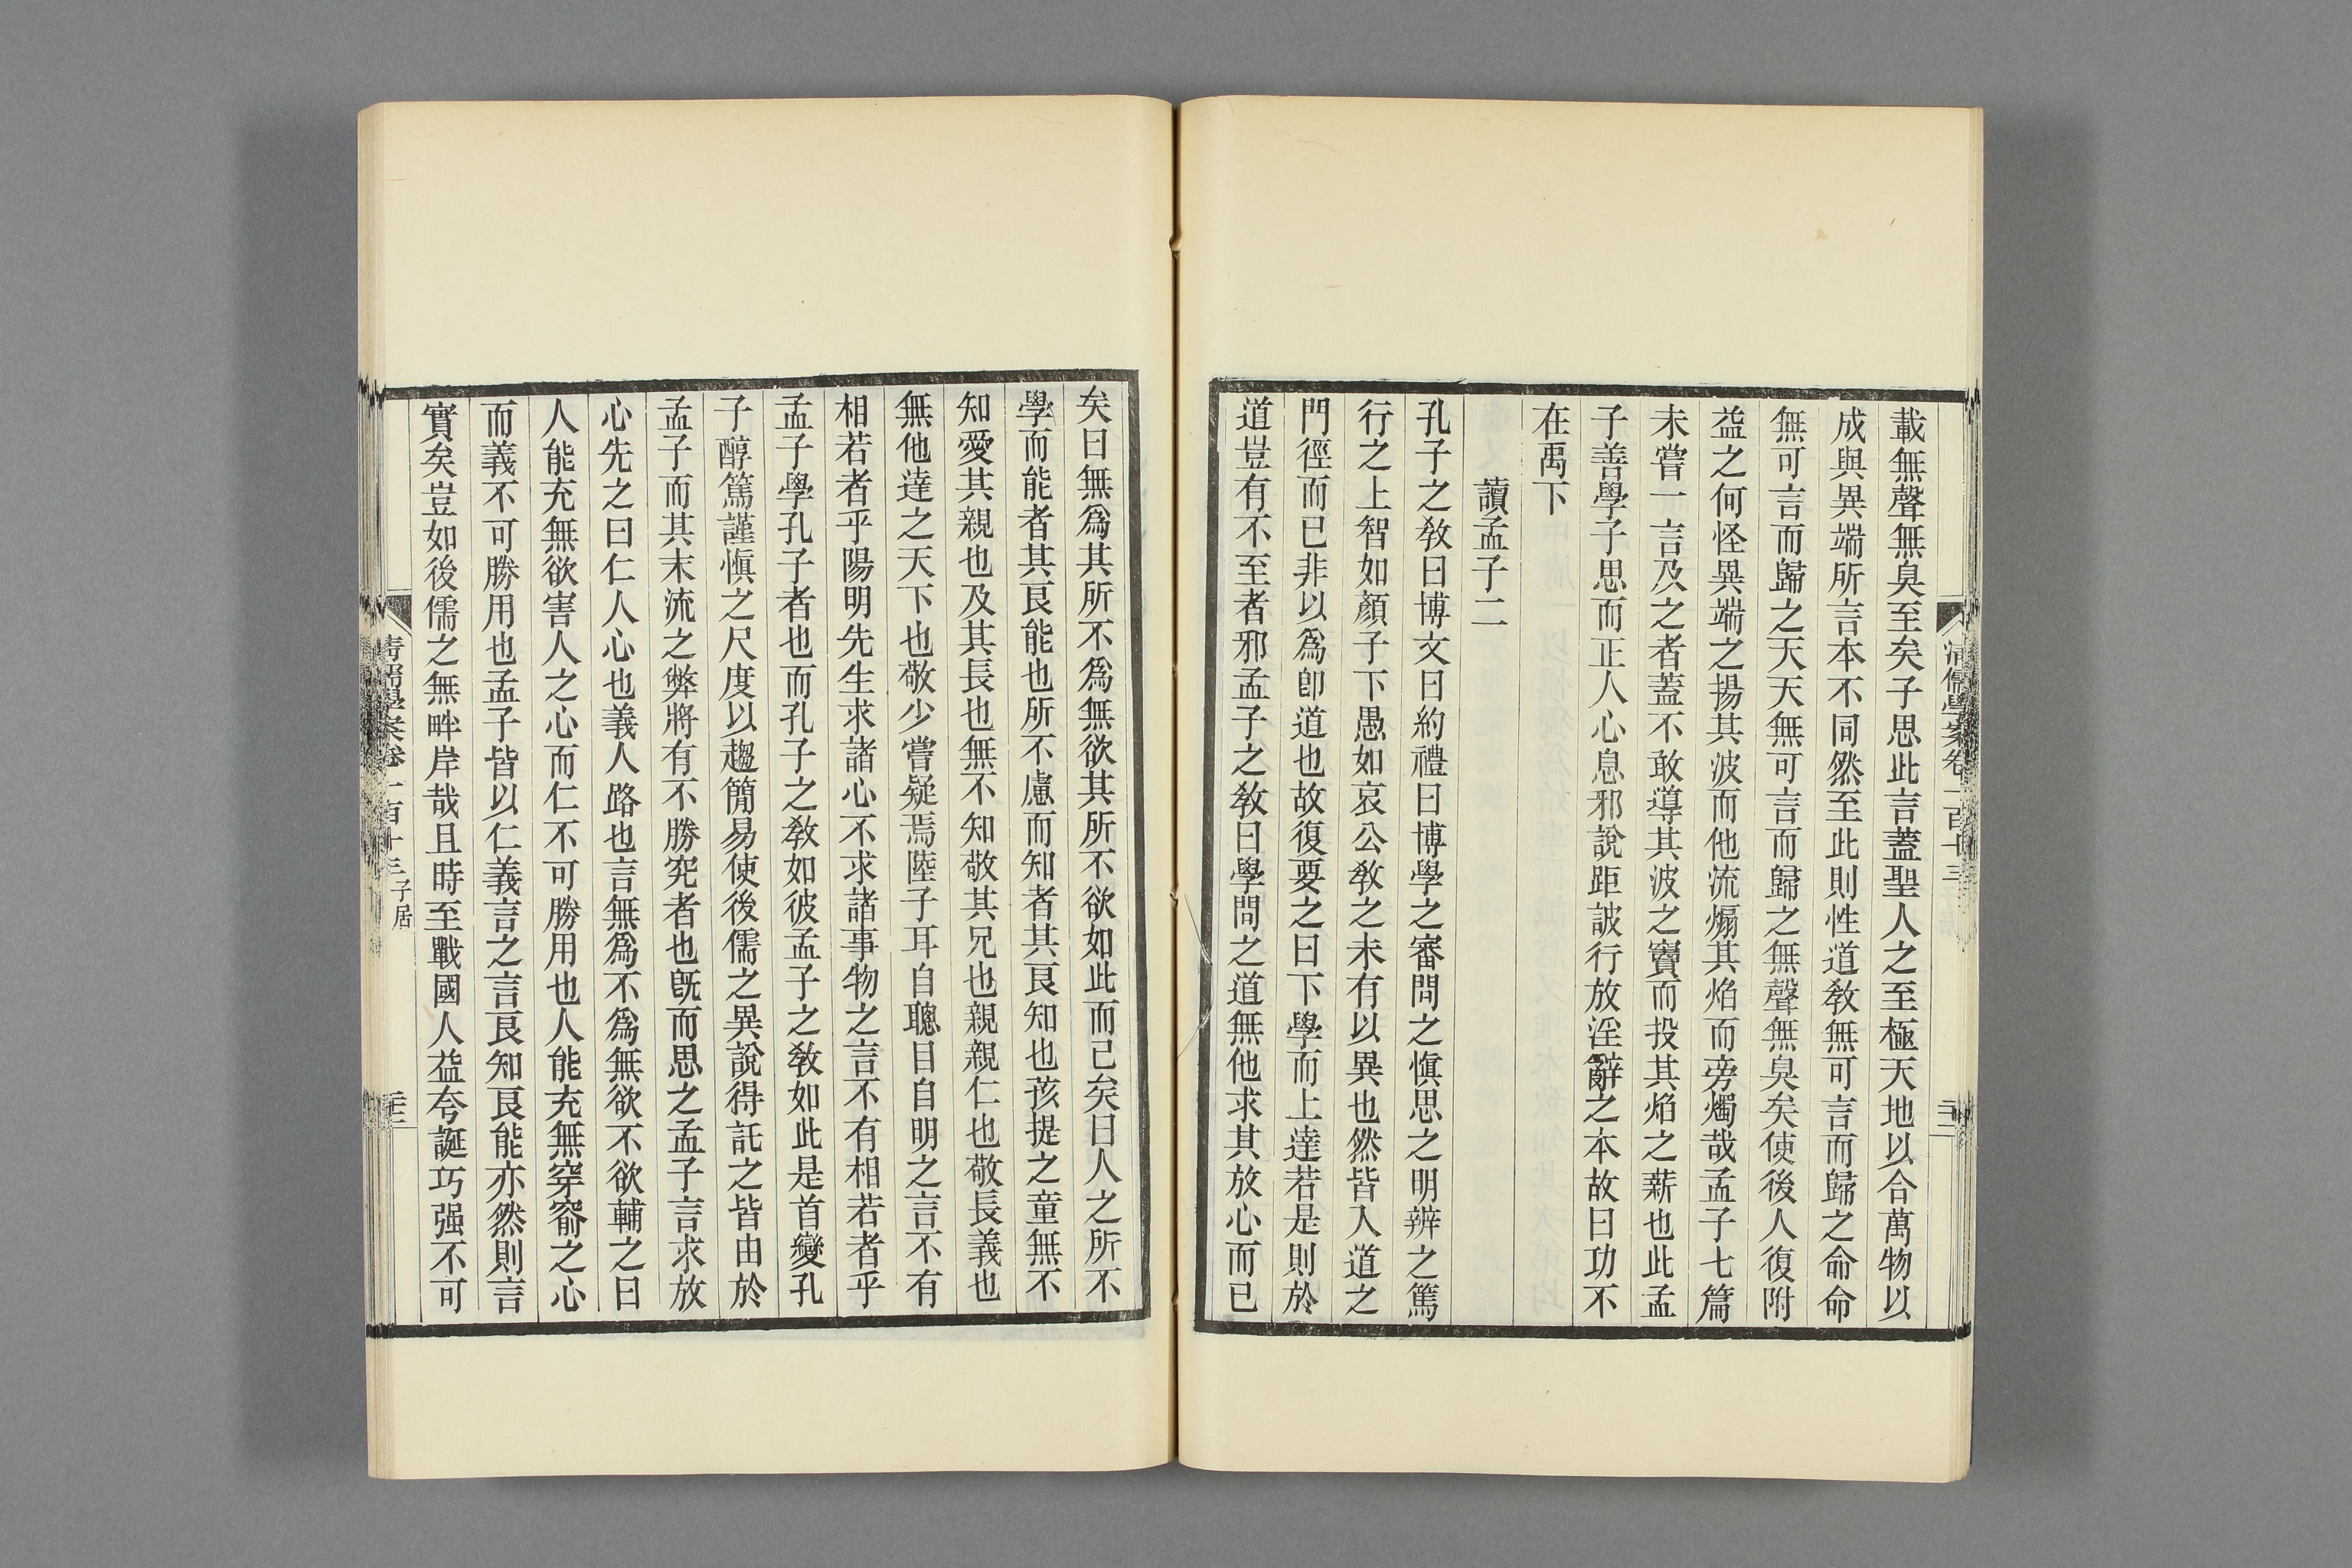 載無聲無臭至矣子思此言蓋聖人之至極天地以合萬物以
成與異端所言本不同然至此則性道敎無可言而歸之命命
無可言而歸之天天無可言而歸之無聲無臭矣使後人復附
益之何怪異端之揚其波而他流煽其焰而旁燭哉孟子七篇
未嘗一言及之者蓋不敢導其波之竇而投其焰之薪也此孟
子善學子思而正人心息邪說距詖行放淫辭之本故曰功不
在禹下
讀孟子二
孔子之敎曰博文曰約禮曰博學之審問之愼思之明辨之篤
行之上智如顏子下愚如哀公敎之未有以異也然皆入道之
門徑而已非以爲卽道也故復要之曰下學而上達若是則於
道豈有不至者邪孟子之敎曰學問之道無他求其放心而已
清儒學案卷一百十三
矣曰無爲其所不爲無欲其所不欲如此而已矣曰人之所不
學而能者其良能也所不慮而知者其良知也孩提之童無不
知愛其親也及其長也無不知敬其兄也親親仁也敬長義也
無他達之天下也敬少嘗疑焉陸子耳自聰目自明之言不有
相若者乎陽明先生求諸心不求諸事物之言不有相若者乎
孟子學孔子者也而孔子之敎如彼孟子之敎如此是首變孔
子醇篤謹愼之尺度以趨簡易使後儒之異說得託之皆由於
孟子而其末流之弊將有不勝究者也旣而思之孟子言求放
心先之曰仁人心也義人路也言無爲不爲無欲不欲輔之曰
人能充無欲害人之心而仁不可勝用也人能充無穿窬之心
而義不可勝用也孟子皆以仁義言之言良知良能亦然則言
實矣豈如後儒之無畔岸哉且時至戰國人益夸誕巧强不可
清儒學案卷一百十三 子居